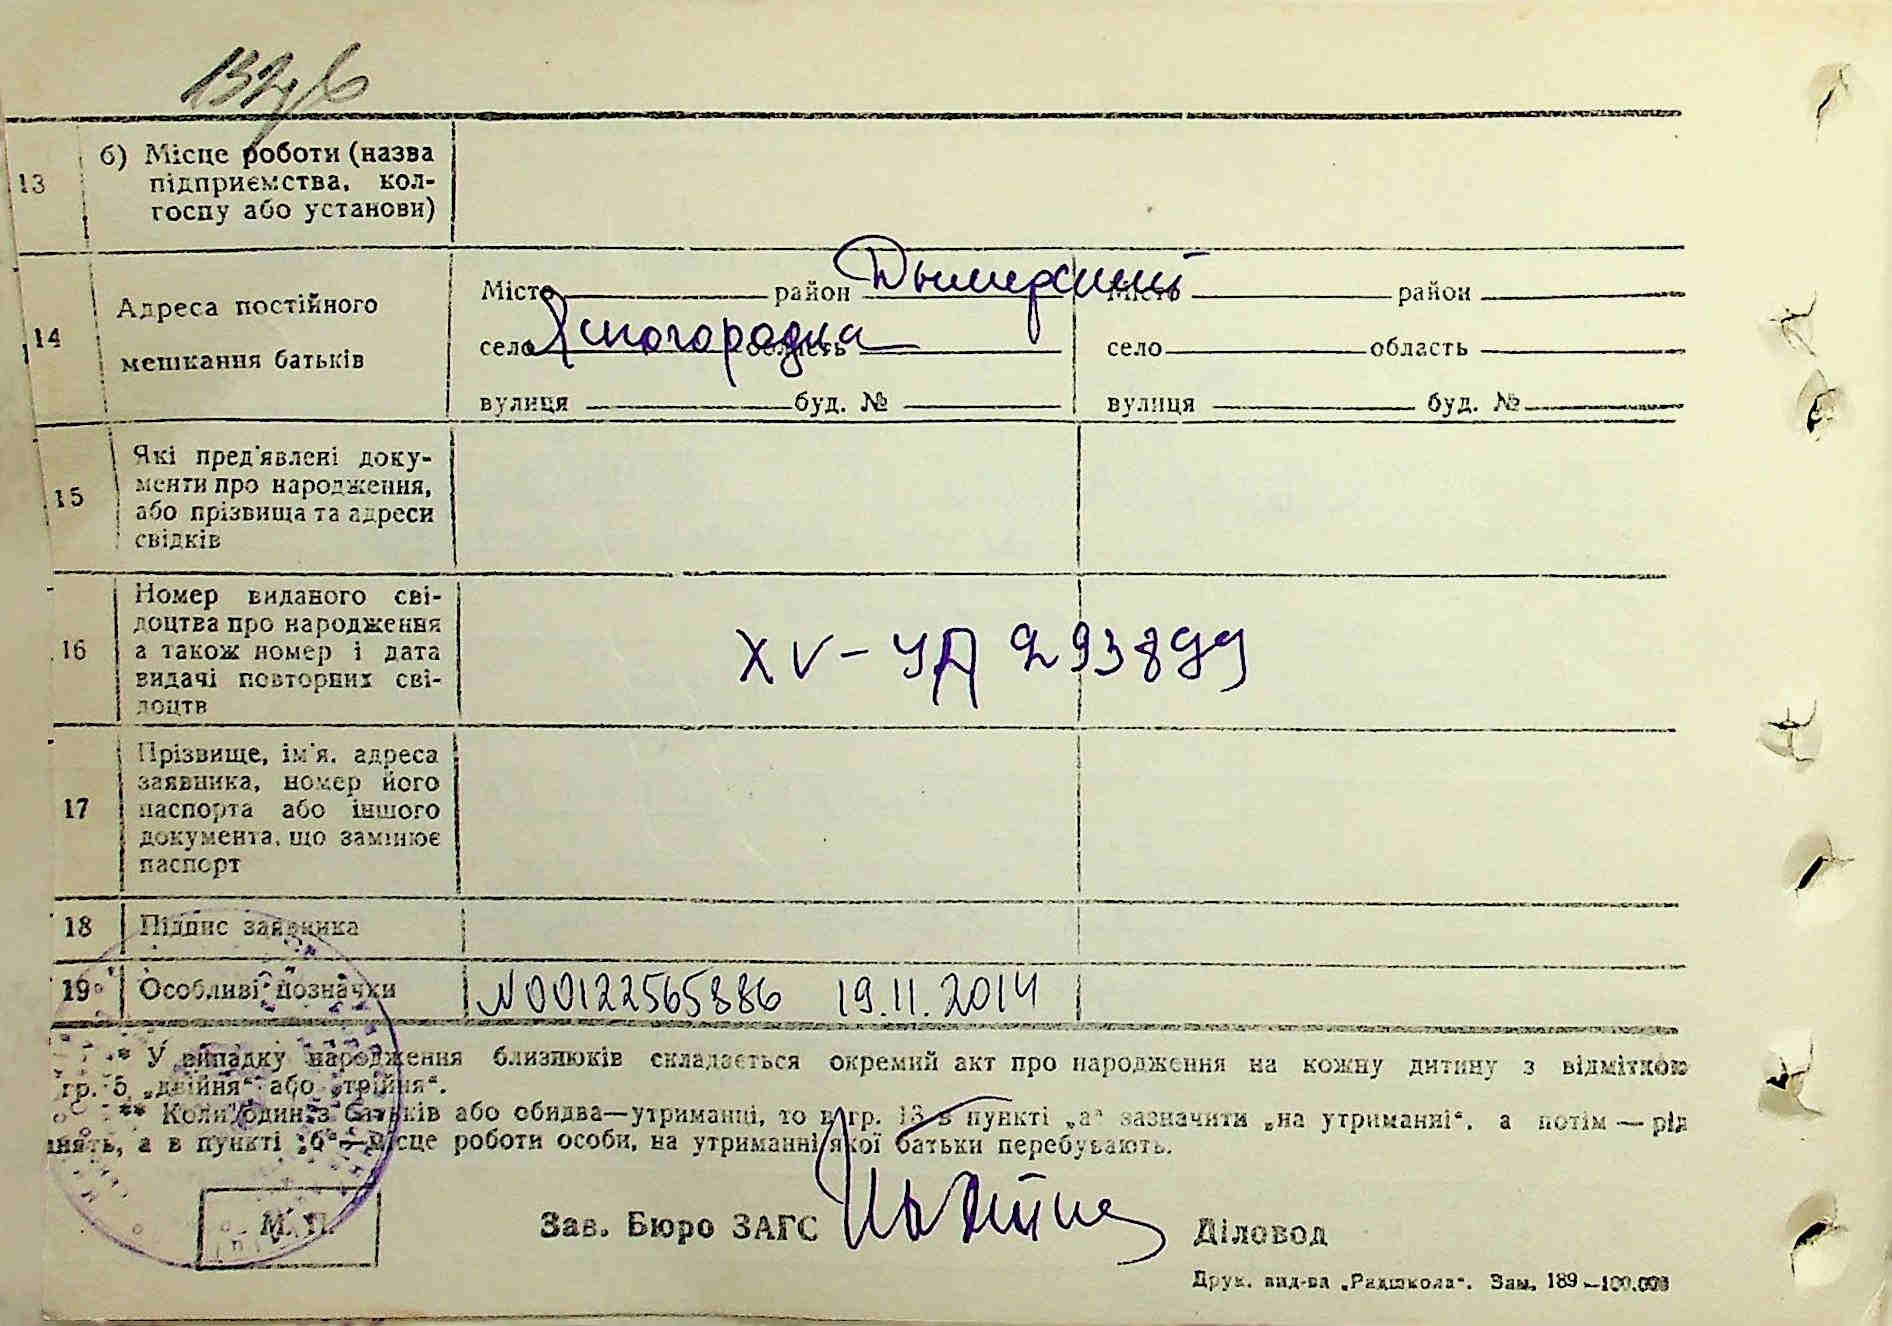 13 б) Місце роботи (назва
підприємства, кол-
госпу або установи)
14 Адреса постійного
мешкання батьків
Місто район Дымерский
село Ясногородка область
вулиця буд. №
Місто район
село область
вулиця буд. №
15 Які пред'явлені доку-
менти про народження,
або прізвища та адреси
свідків
16 Номер виданого сві-
доцтва про народження
а також номер і дата
видачі повторних сві-
доцтв
XV - УА 293899
17 Прізвище, ім'я, адреса
заявника, номер його
паспорта або іншого
документа, що замінює
паспорт
18 Підпис заявника
19 Особливі позначки
N00122565886 19.11.2014
* У випадку народження близнюків складається окремий акт про народження на кожну дитину з відміткою
гр. 5 „двійня“ або „трійня“.
** Коли один з батьків або обидва—утриманці, то в гр. 13 в пункті „а“ зазначити „на утриманні“, а потім — рід
анять, а в пункті „б“—місце роботи особи, на утриманні якої батьки перебувають.
М. П.
Зав. Бюро ЗАГС
Діловод
Друк. вид-ва „Радшкола“. Зам. 189—100.000